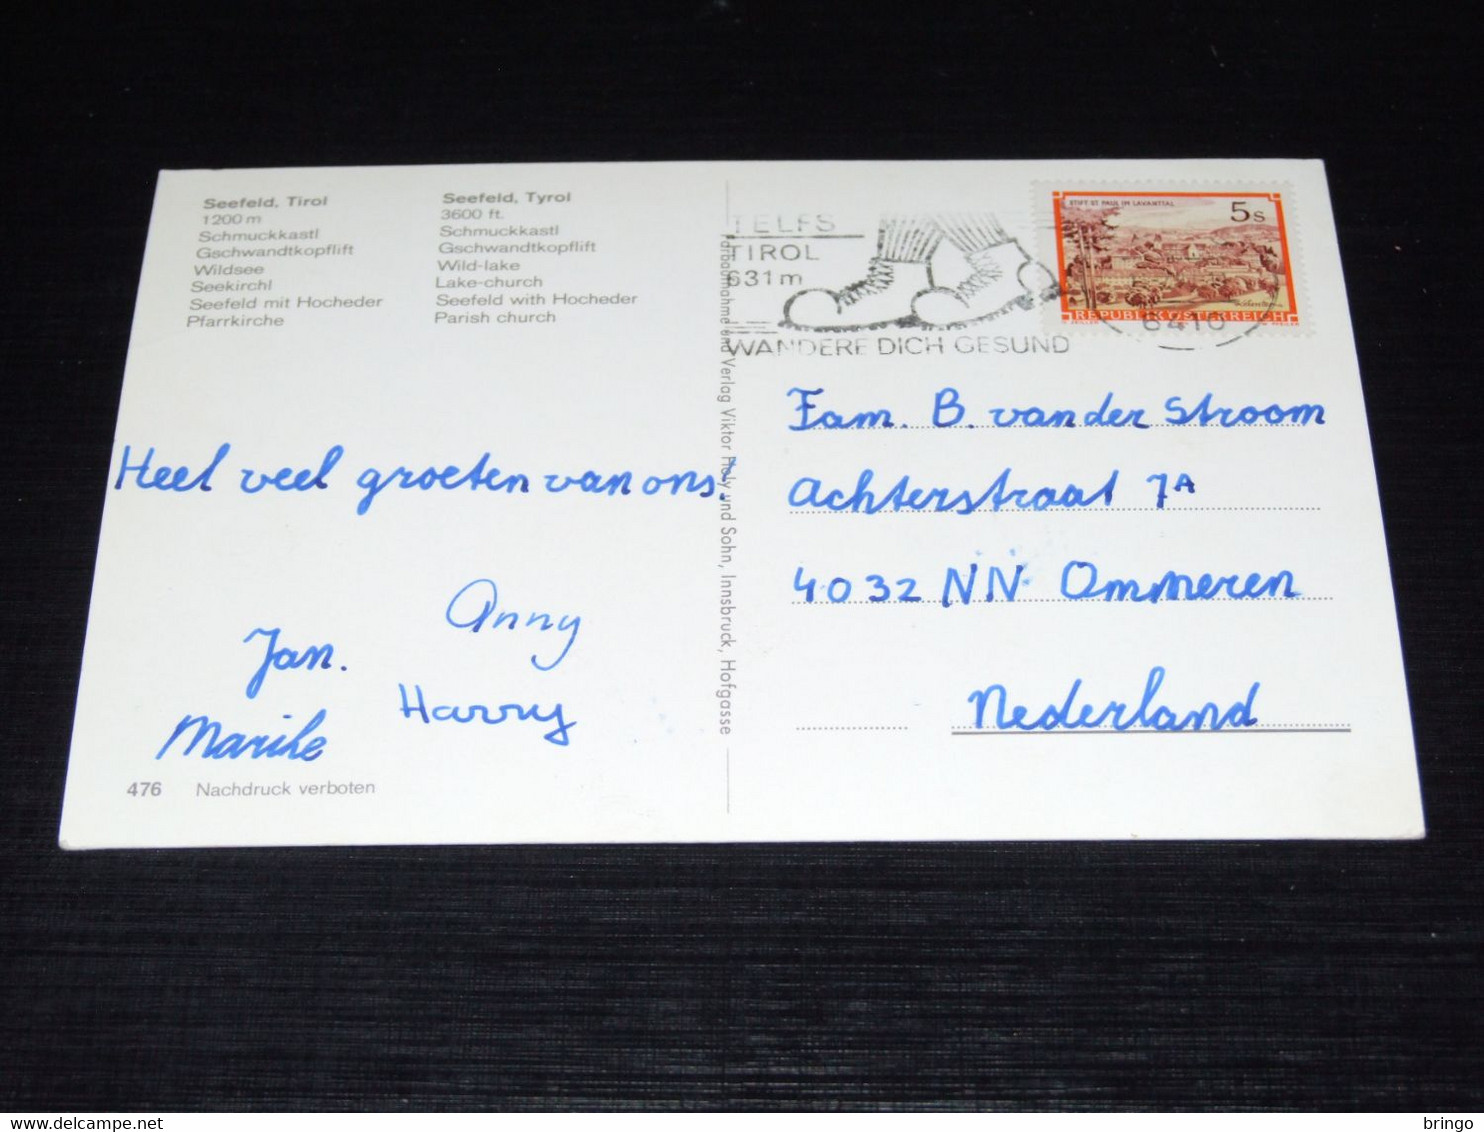 Seefeld, Tirol
1200 m
Schmuckkastl
Gschwandtkopflift
Wildsee
Seekirchl
Seefeld mit Hocheder
Pfarrkirche
Seefeld, Tyrol
3600 ft.
Schmuckkastl
Gschwandtkopflift
Wild-lake
Lake-church
Seefeld with Hocheder
Parish church
TELFS
TIROL
631 m
WANDERE DICH GESUND
STIFT ST. PAUL IM LAVANTTAL
5 s
REPUBLIK ÖSTERREICH
6410
Heel veel groeten van ons!
Anny
Jan.
Harry
Marike
476 Nachdruck verboten
Farbaufnahme und Verlag Viktor Holy und Sohn, Innsbruck, Hofgasse
Fam. B. van der Stroom
Achterstraat 7A
4032 NN Ommeren
Nederland
delcampe.net
bringo